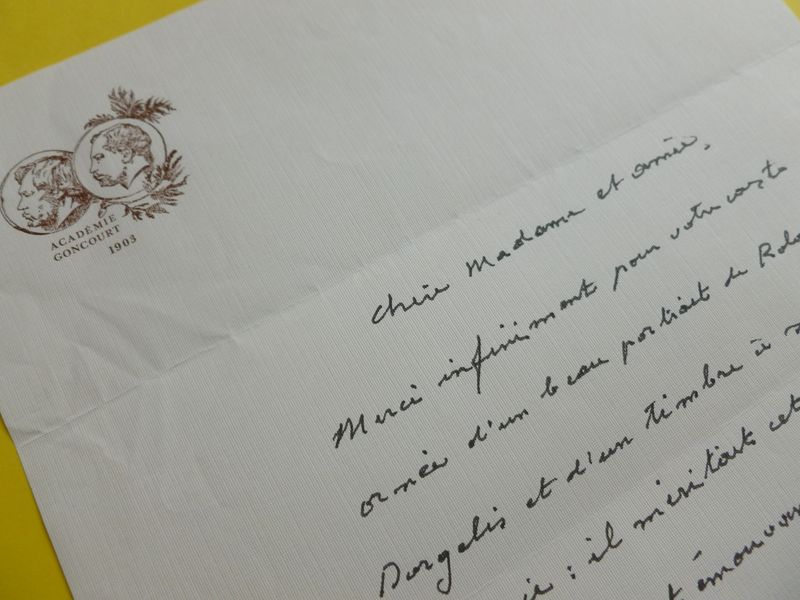 ACADÉMIE
GONCOURT
1903
Chère Madame et amie,
Merci infiniment pour votre carte
ornée d'un beau portrait de
Dorgelès et d'un timbre à
: il méritait cet